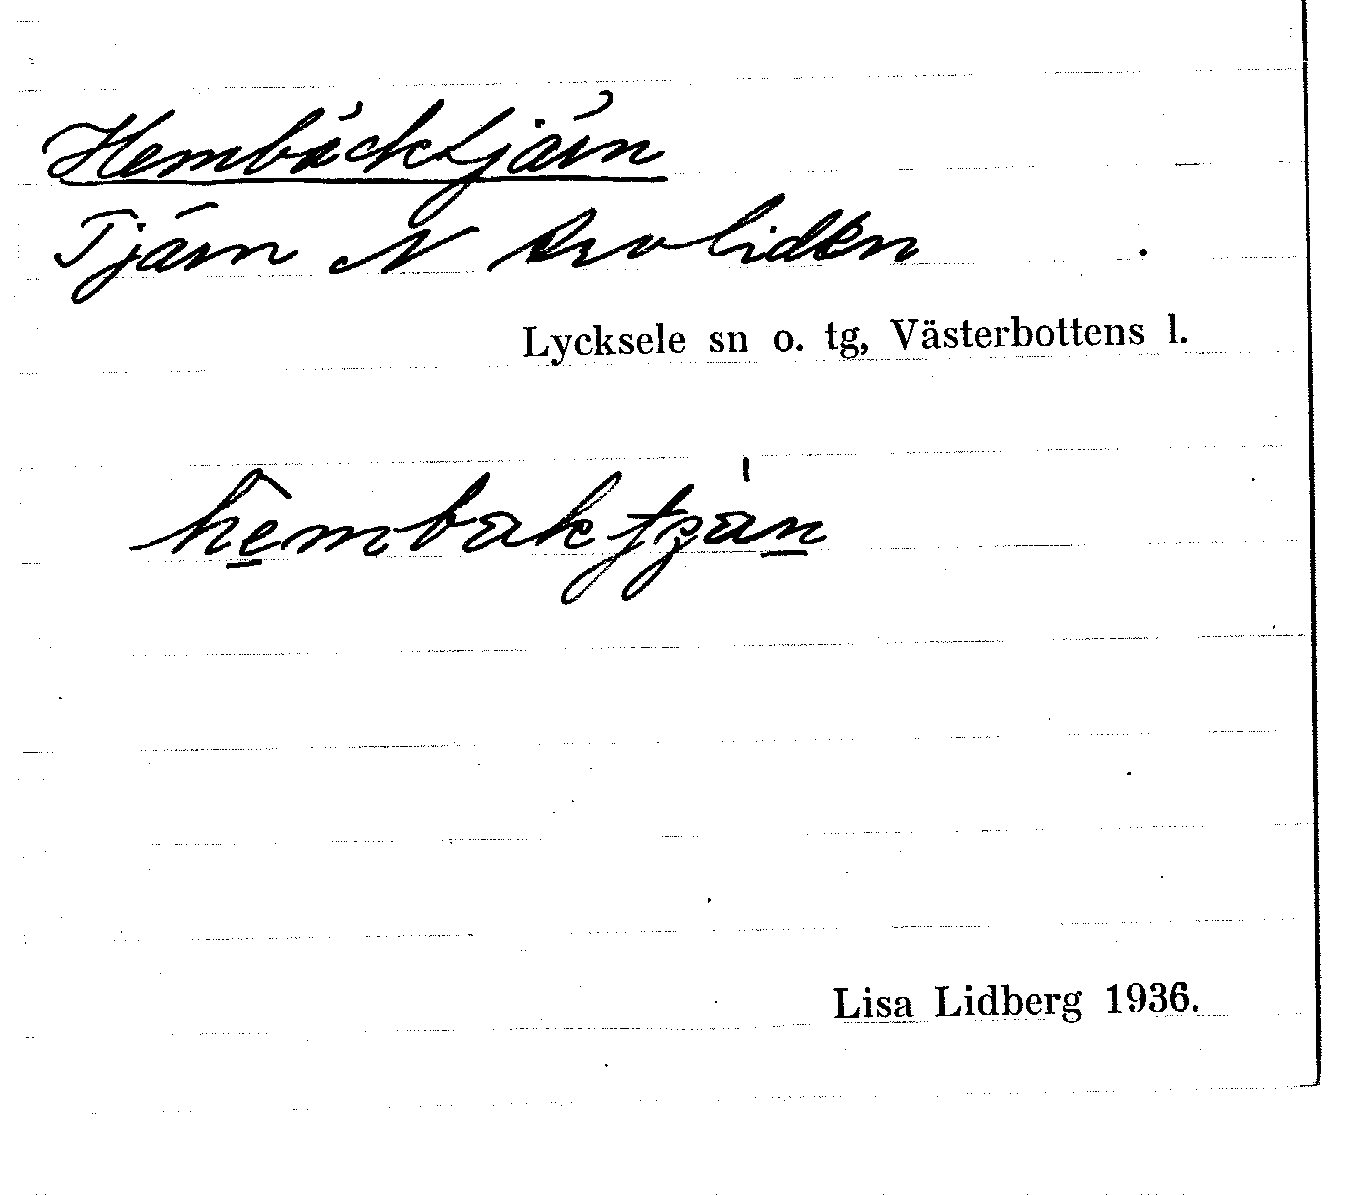 Hembäcktjärn
Tjärn N Arvliden
Lycksele sn o. tg, Västerbottens l.
hembaktjan
Lisa Lidberg 1936.